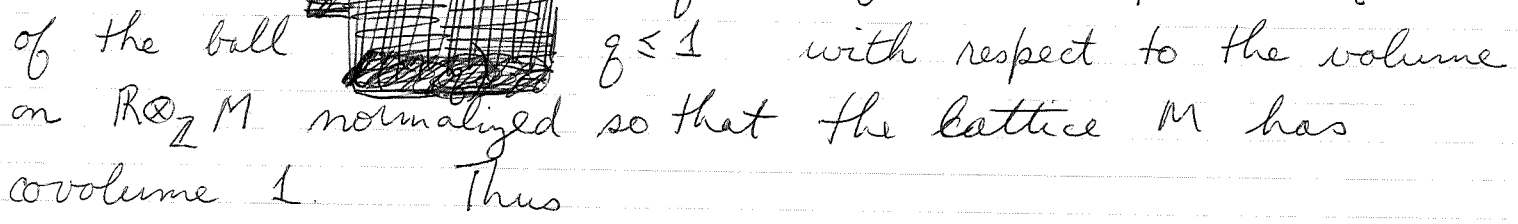 of the ball q ≤ 1 with respect to the volume
on ℝ⊗_ℤ M normalized so that the lattice M has
covolume 1. Thus